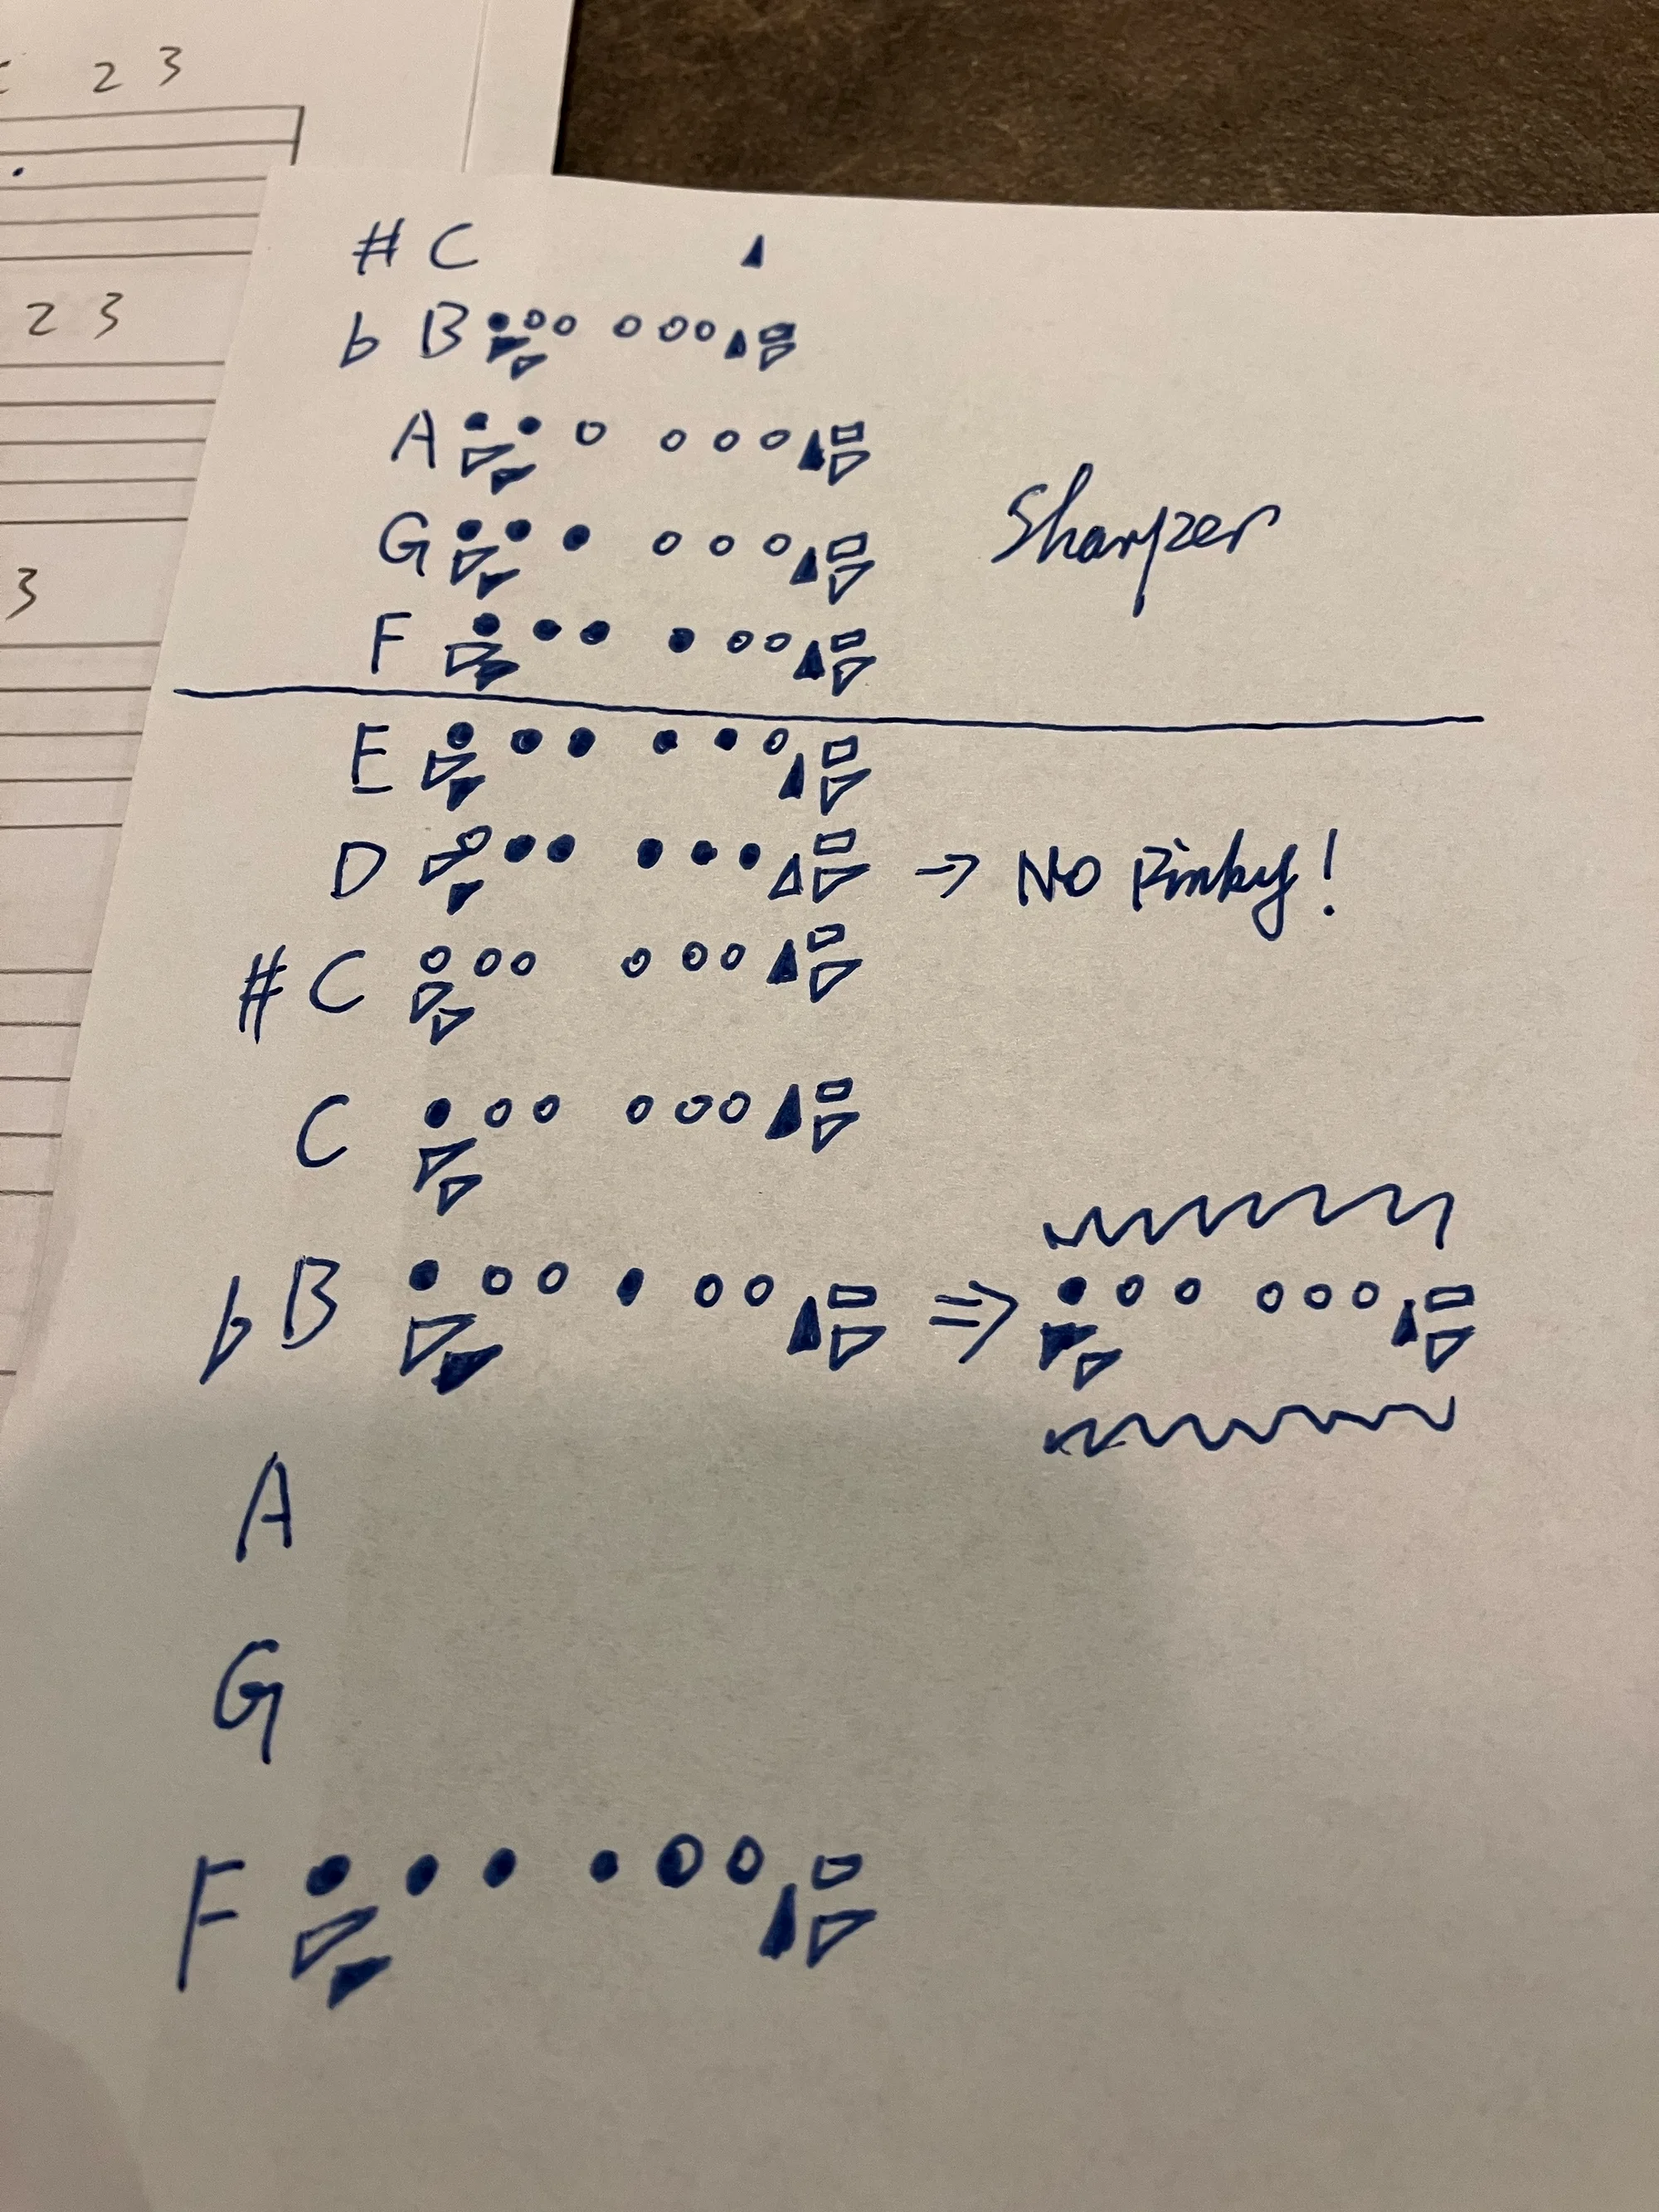 2 3
2 3
3
# C
b B
A
G Sharper
F
E
D → No Pinky!
# C
C
b B ⇒
A
G
F